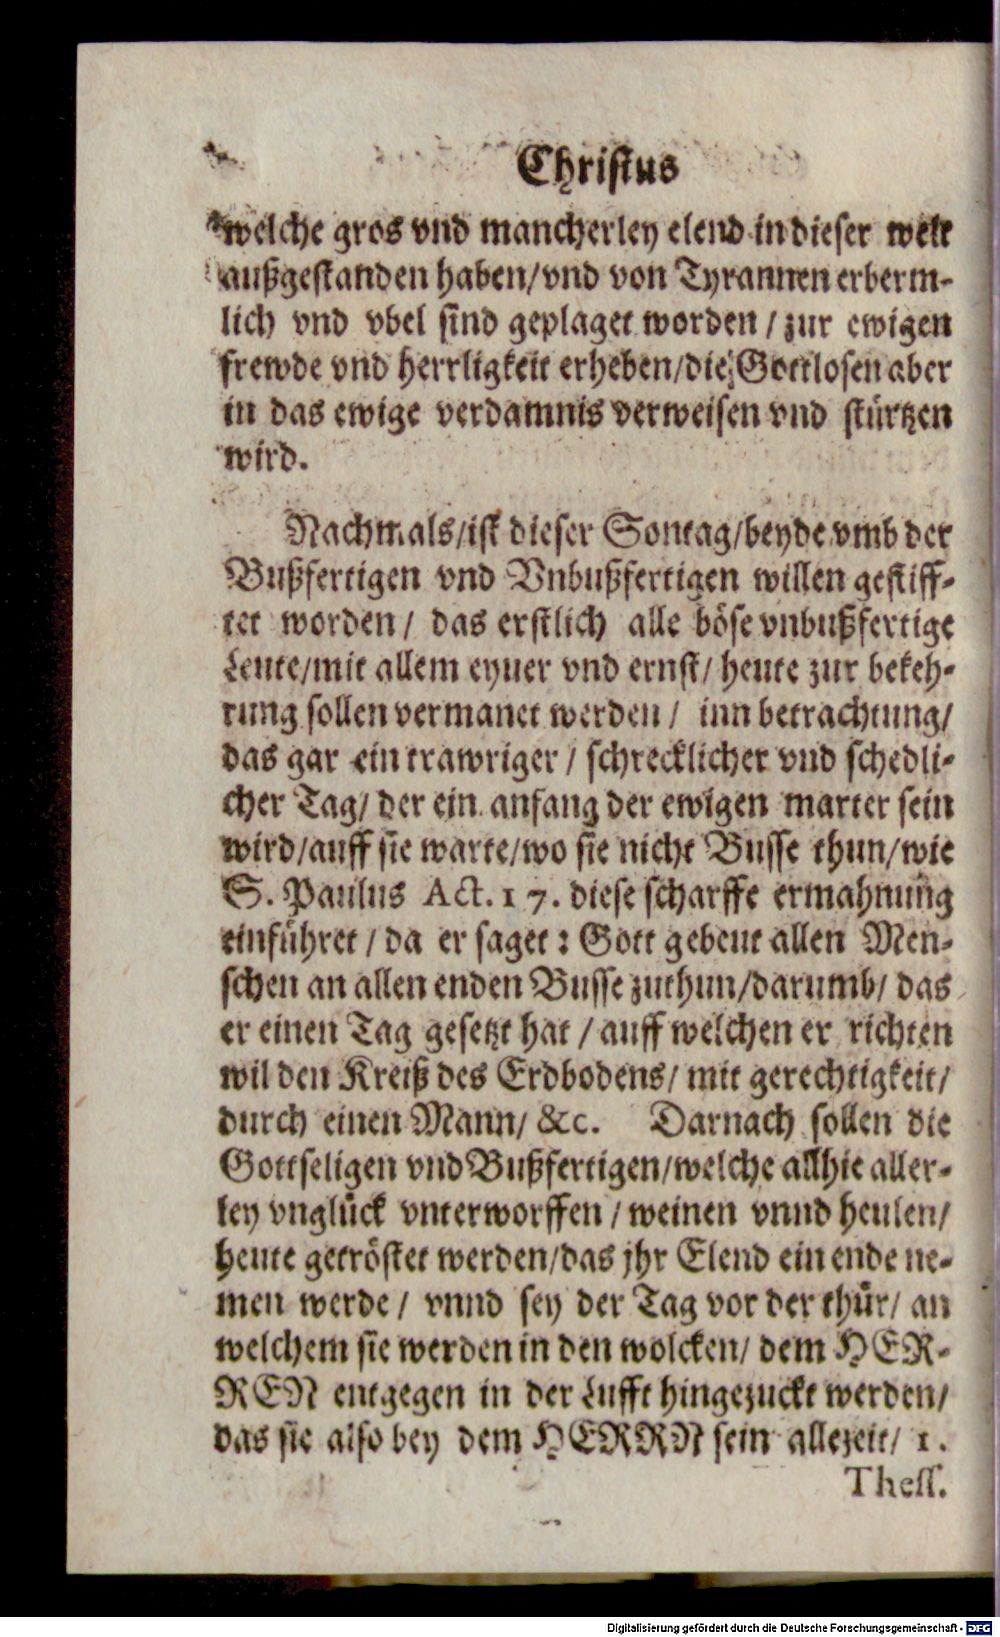 Christus
welche gros vnd mancherley elend in dieser welt
außgestanden haben/vnd von Tyrannen erberm-
lich vnd vbel sind geplaget worden / zur ewigen
frewde vnd herrligkeit erheben/die Gottlosen aber
in das ewige verdamnis verweisen vnd stürtzen
wird.
Nachmals/ist dieser Sontag/beyde vmb der
Bußfertigen vnd Vnbußfertigen willen gestiff-
tet worden/ das erstlich alle böse vnbußfertige
Leute/mit allem eyuer vnd ernst/ heute zur bekeh-
rung sollen vermanet werden / inn betrachtung/
das gar ein trawriger / schrecklicher vnd schedli-
cher Tag/ der ein anfang der ewigen marter sein
wird/auff sie warte/wo sie nicht Busse thun/wie
S. Paulus Act. 17. diese scharffe ermahnung
einführet / da er saget: Gott gebeut allen Men-
schen an allen enden Busse zuthun/darumb/ das
er einen Tag gesetzt hat / auff welchen er richten
wil den Kreiß des Erdbodens/ mit gerechtigkeit/
durch einen Mann/ &c. Darnach sollen die
Gottseligen vnd Bußfertigen/welche allhie aller-
ley vnglück vnterworffen / weinen vnnd heulen/
heute getröstet werden/das jhr Elend ein ende ne-
men werde / vnnd sey der Tag vor der thür/ an
welchem sie werden in den wolcken/ dem HER-
REN entgegen in der Lufft hingezuckt werden/
das sie also bey dem HERRN sein allezeit/ 1.
Thess.
Digitalisierung gefördert durch die Deutsche Forschungsgemeinschaft - DFG